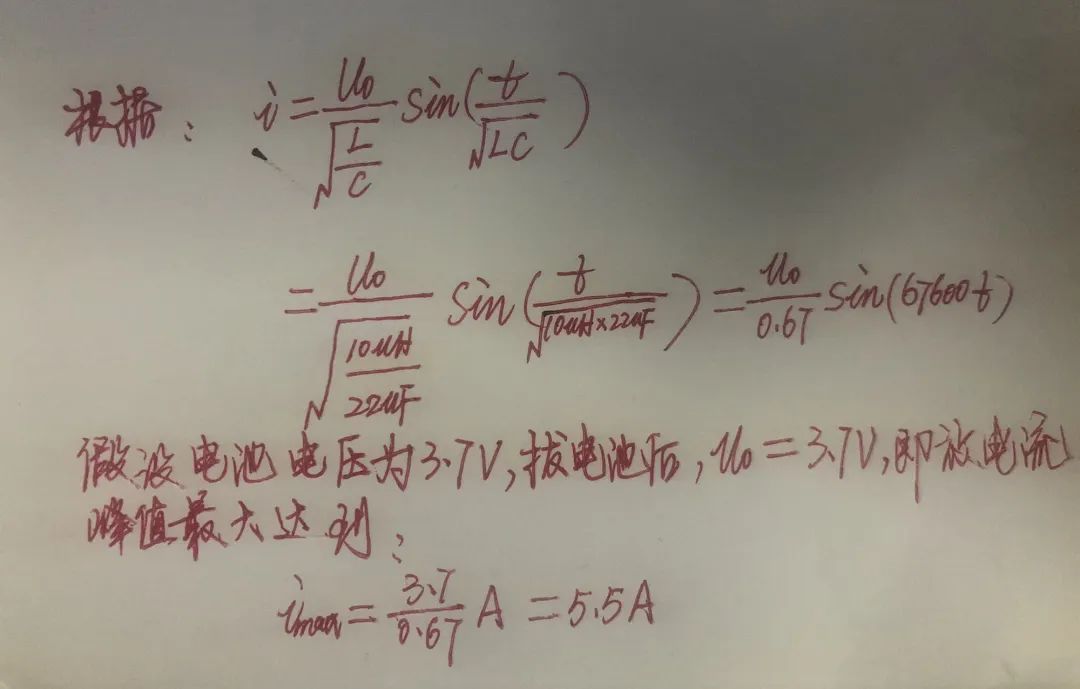 根据: i = U₀/√(L/C) sin(t/√(LC))
= U₀/√(10uH/22uF) sin(t/√(10uH×22uF)) = U₀/0.67 sin(67600t)
假设电池电压为3.7V,拔电池后,U₀=3.7V,即放电流
峰值最大达到:
imax = 3.7/0.67 A = 5.5A